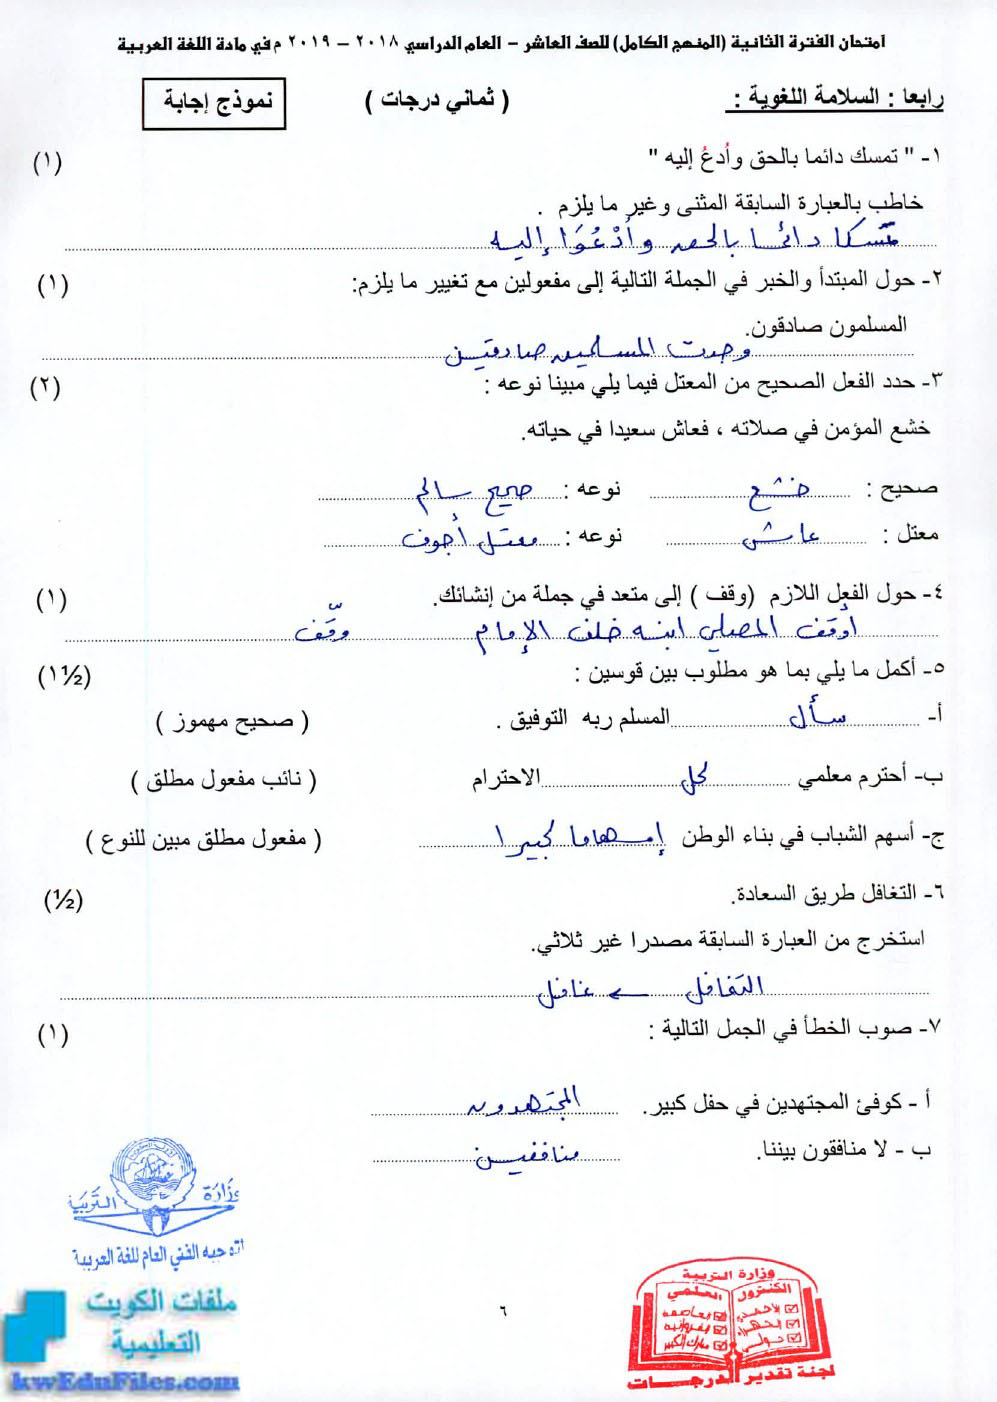 امتحان الفترة الثانية (المنهج الكامل) للصف العاشر – العام الدراسي ٢٠١٨ – ٢٠١٩ م في مادة اللغة العربية
رابعا : السلامة اللغوية : ( ثماني درجات ) نموذج إجابة
١- " تمسك دائما بالحق وأدعُ إليه " (١)
خاطب بالعبارة السابقة المثنى وغير ما يلزم .
تمسكا دائما بالحق وأدْعُوَا إليه
٢- حول المبتدأ والخبر في الجملة التالية إلى مفعولين مع تغيير ما يلزم: (١)
المسلمون صادقون.
وجدت المسلمين صادقين
٣- حدد الفعل الصحيح من المعتل فيما يلي مبينا نوعه : (٢)
خشع المؤمن في صلاته ، فعاش سعيدا في حياته.
صحيح : خشع نوعه : صحيح سالم
معتل : عاش نوعه : معتل أجوف
٤- حول الفعل اللازم (وقف ) إلى متعد في جملة من إنشائك. (١)
أوقف المصلي ابنه خلف الإمام وقّف
٥- أكمل ما يلي بما هو مطلوب بين قوسين : (١½)
أ- سأل المسلم ربه التوفيق . ( صحيح مهموز )
ب- أحترم معلمي كل الاحترام ( نائب مفعول مطلق )
ج- أسهم الشباب في بناء الوطن إسهاما كبيرا ( مفعول مطلق مبين للنوع )
٦- التغافل طريق السعادة. (½)
استخرج من العبارة السابقة مصدرا غير ثلاثي.
التغافل ← غافل
٧- صوب الخطأ في الجمل التالية : (١)
أ - كوفئ المجتهدين في حفل كبير. المجتهدون
ب - لا منافقون بيننا. منافقين
وزارة التربية
التوجيه الفني العام للغة العربية
ملفات الكويت
التعليمية
kwEduFiles.com
٦
وزارة التربية
الكنترول العلمي
الأحمدي العاصمة
الجهراء الفروانية
حولي مبارك الكبير
لجنة تقدير الدرجات